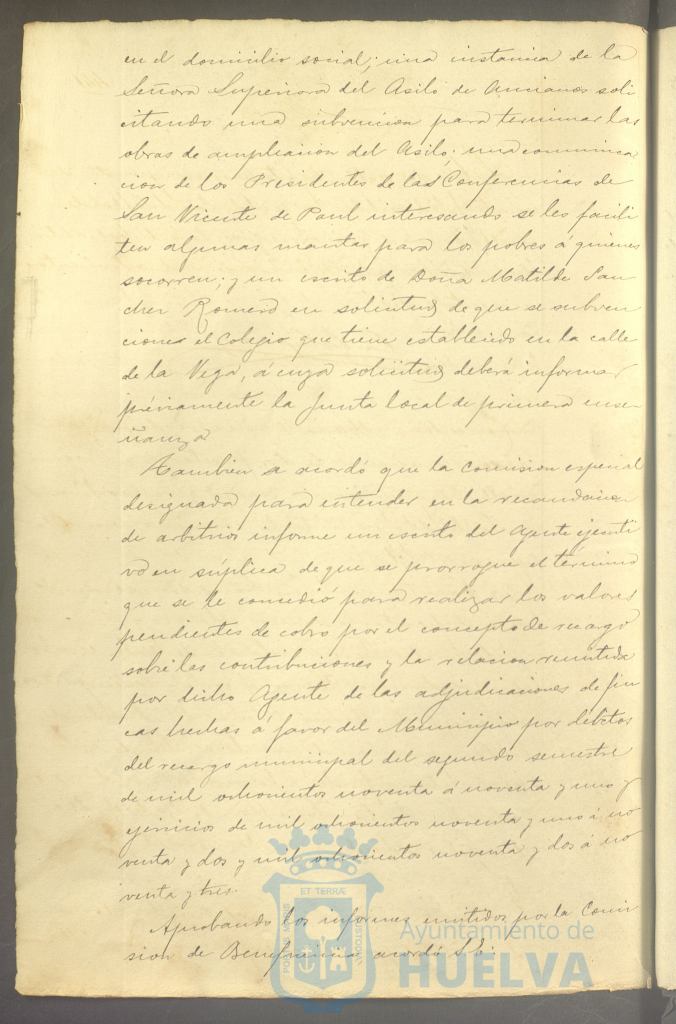 en el domicilio social; una instancia de la
Señora Superiora del Asilo de Ancianos soli
citando una subvencion para terminar las
obras de ampliacion del Asilo; una comunica
cion de los Presidentes de las Conferencias de
San Vicente de Paul interesando se les facili
ten algunas mantas para los pobres á quienes
socorren; y un escrito de Doña Matilde San
chez Romero en solicitud de que se subven
cione el Colegio que tiene establecido en la calle
de la Vega, á cuya solicitud deberá informar
préviamente la Junta local de primera ense
ñanza
Tambien se acordó que la Comision especial
designada para entender en la recaudacion
de arbitrios informe un escrito del Agente ejecuti
vo en súplica de que se prorrogue el término
que se le concedió para realizar los valores
pendientes de cobro por el concepto de recargo
sobre las contribuciones y la relacion remitida
por dicho Agente de las adjudicaciones de fin
cas hechas á favor del Municipio por debitos
del recargo municipal del segundo semestre
de mil ochocientos noventa á noventa y uno y
ejercicios de mil ochocientos noventa y uno á no
venta y dos y mil ochocientos noventa y dos á no
venta y tres.
Aprobando los informes emitidos por la Comi
sion de Beneficencia acordó S. E:
PORTUS MARIS ET TERRÆ CUSTODIA
Ayuntamiento de
HUELVA